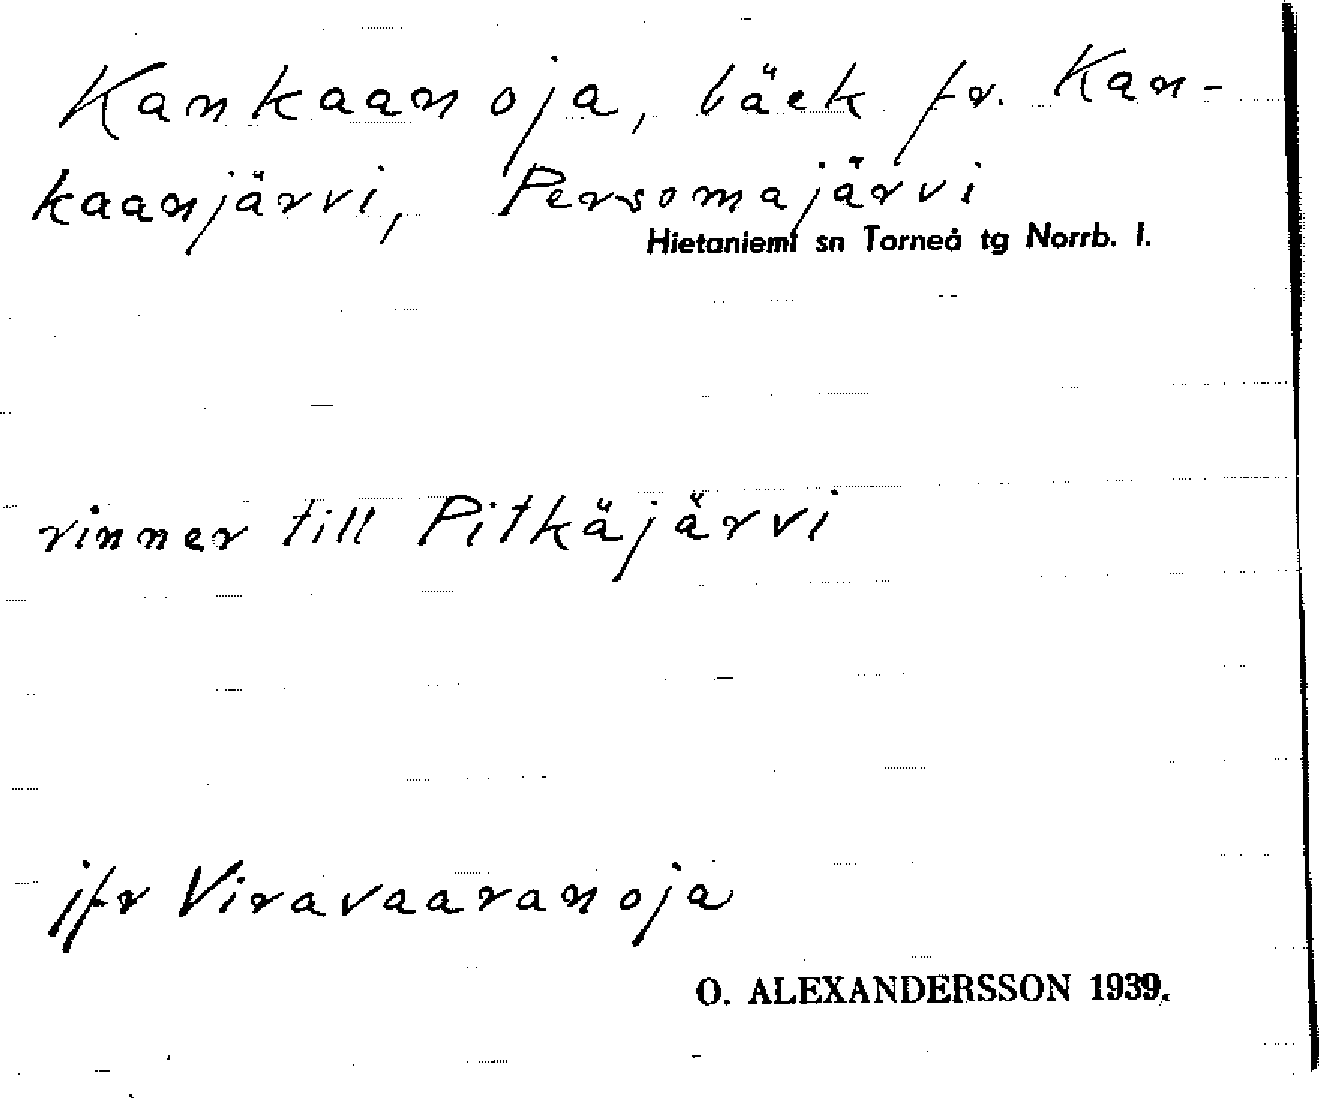 Kankaanoja, bäck fr. Kan-
kaanjärvi, Persomajärvi
Hietaniemi sn Torneå tg Norrb. l.
rinner till Pitkäjärvi
jfr Viravaaranoja
O. ALEXANDERSSON 1939.